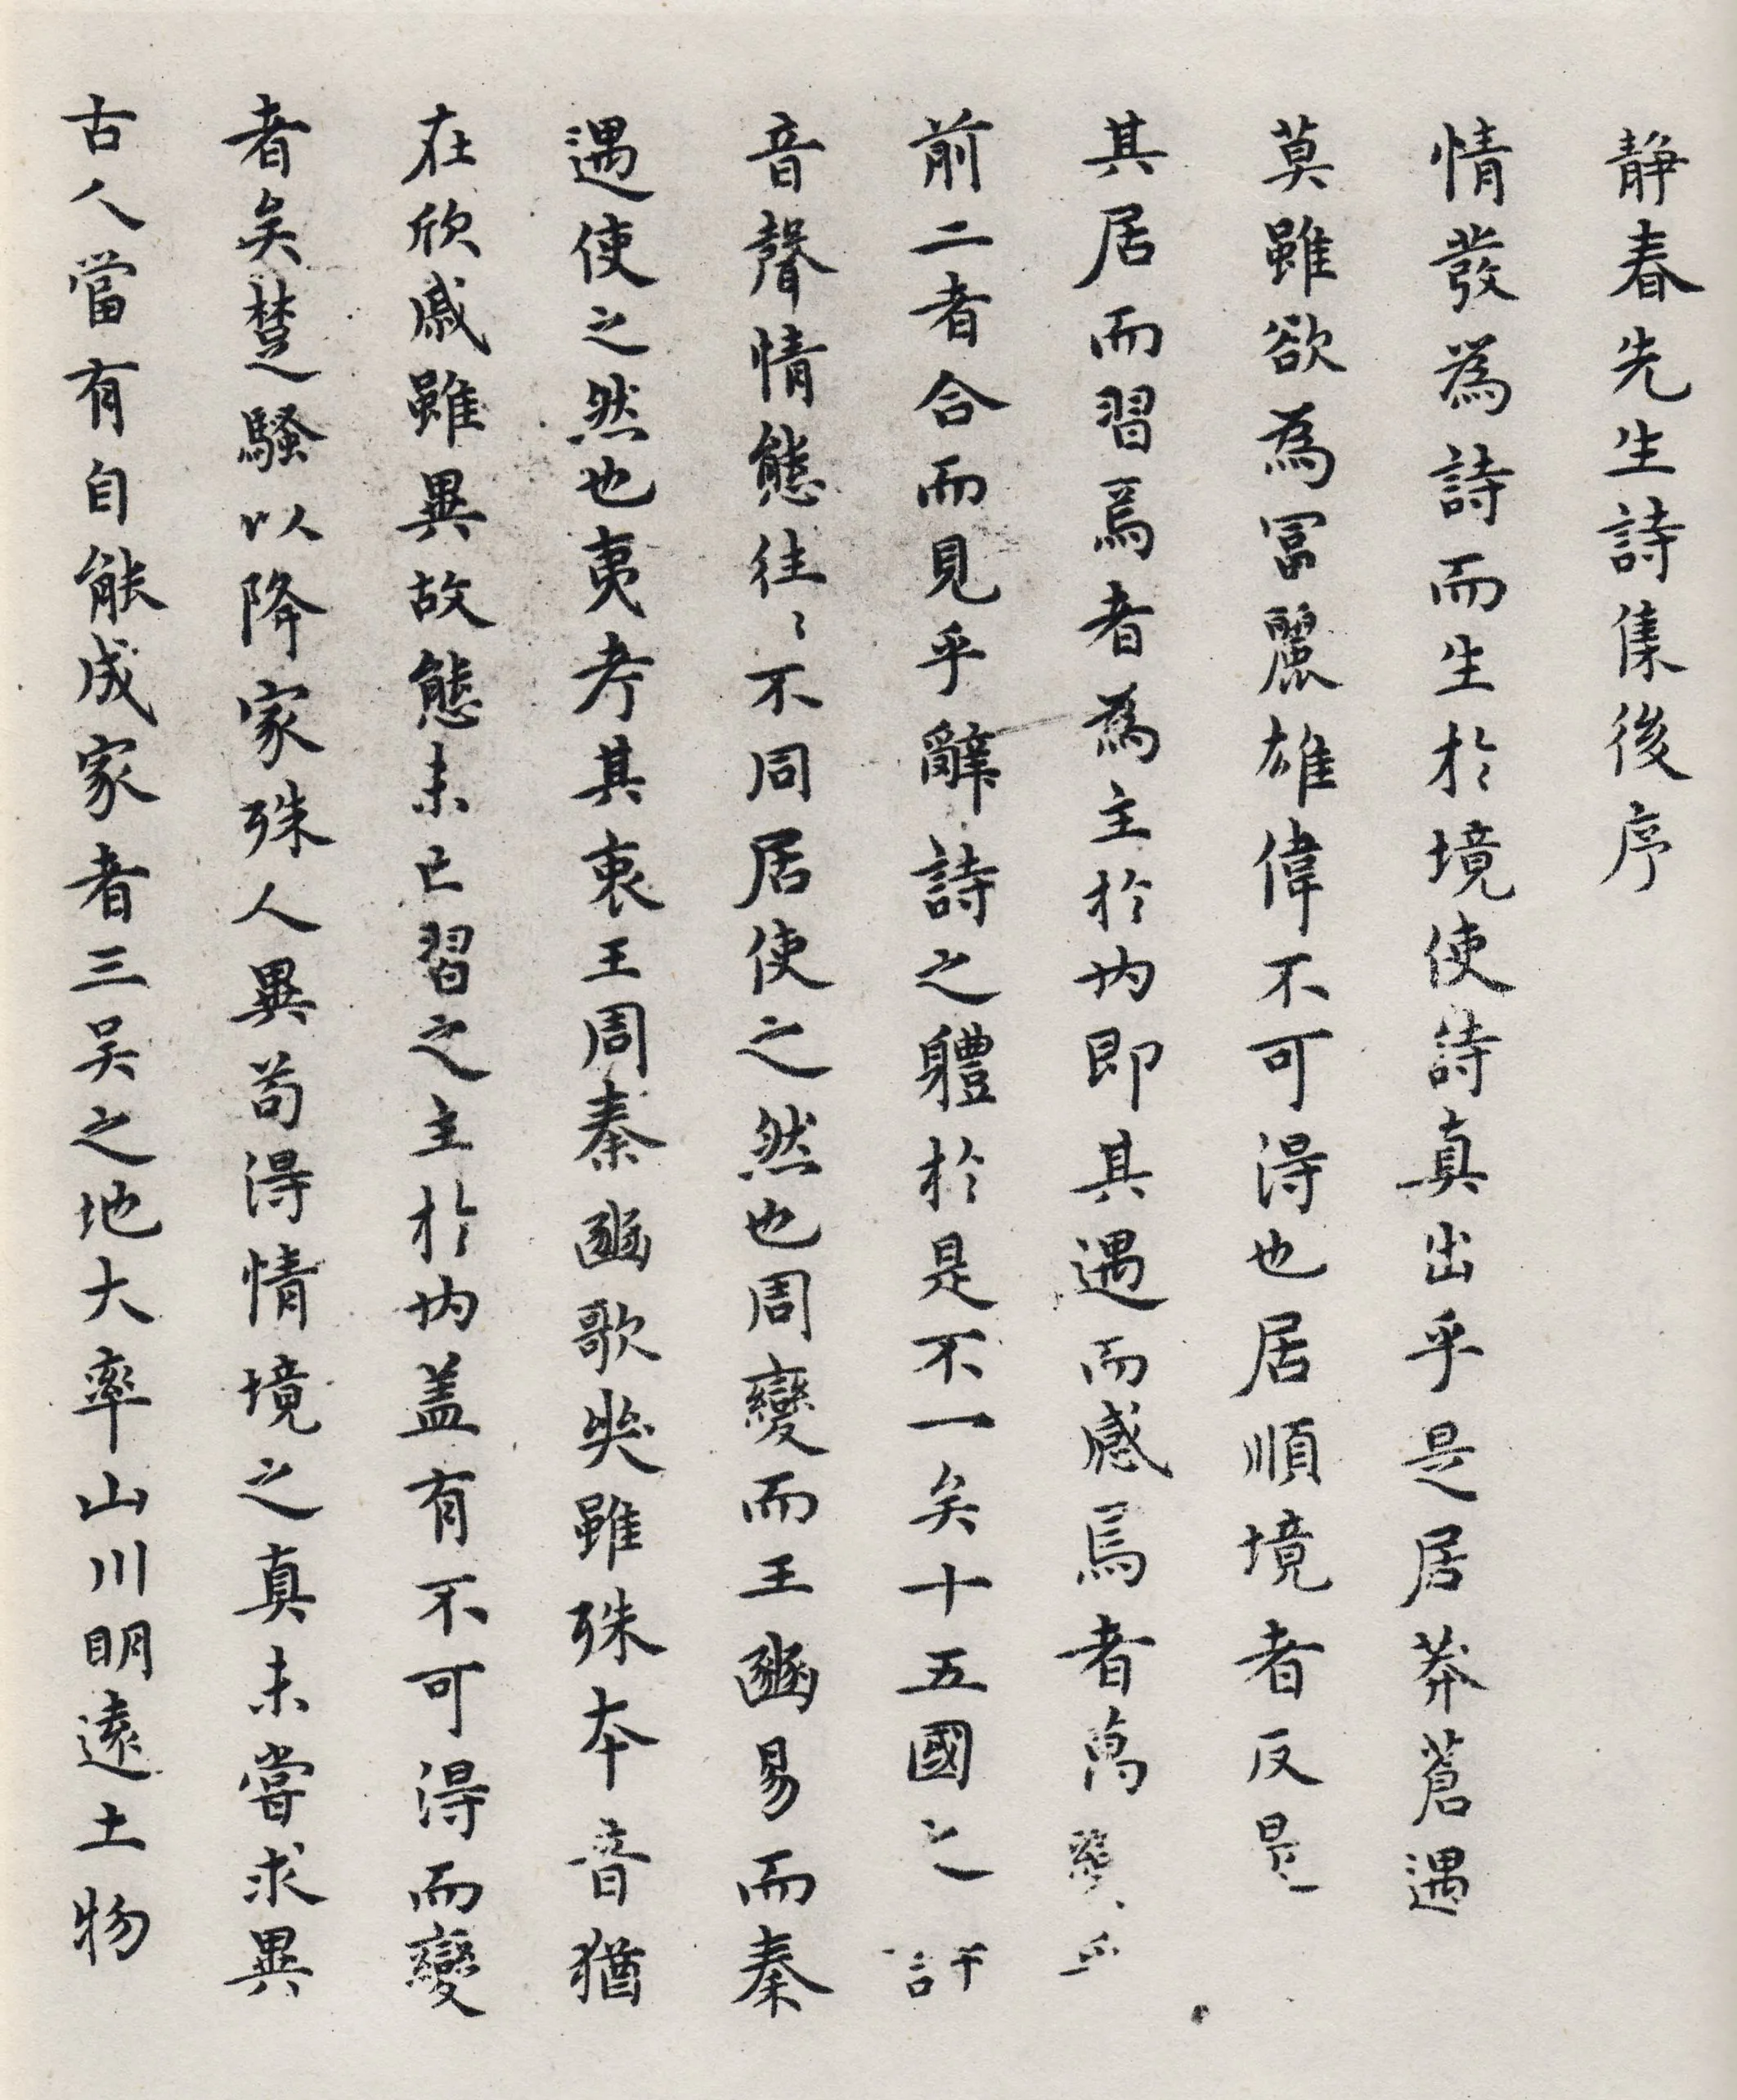 靜春先生詩集後序
情發為詩而生於境使詩真出乎是居莽蒼遇
莫雖欲為冨麗雄偉不可得也居順境者反是
其居而習焉者為主於内即其遇而感焉者萬變
前二者合而見乎辭詩之軆於是不一矣十五國之
音聲情態往〻不同居使之然也周變而王豳易而秦
遇使之然也夷考其衷王周秦豳歌哭雖殊本音猶
在欣戚雖異故態未亡習之主於内盖有不可得而變
者矣楚騷以降家殊人異茍得情境之真未嘗求異
古人當有自能成家者三吴之地大率山川明遠土物